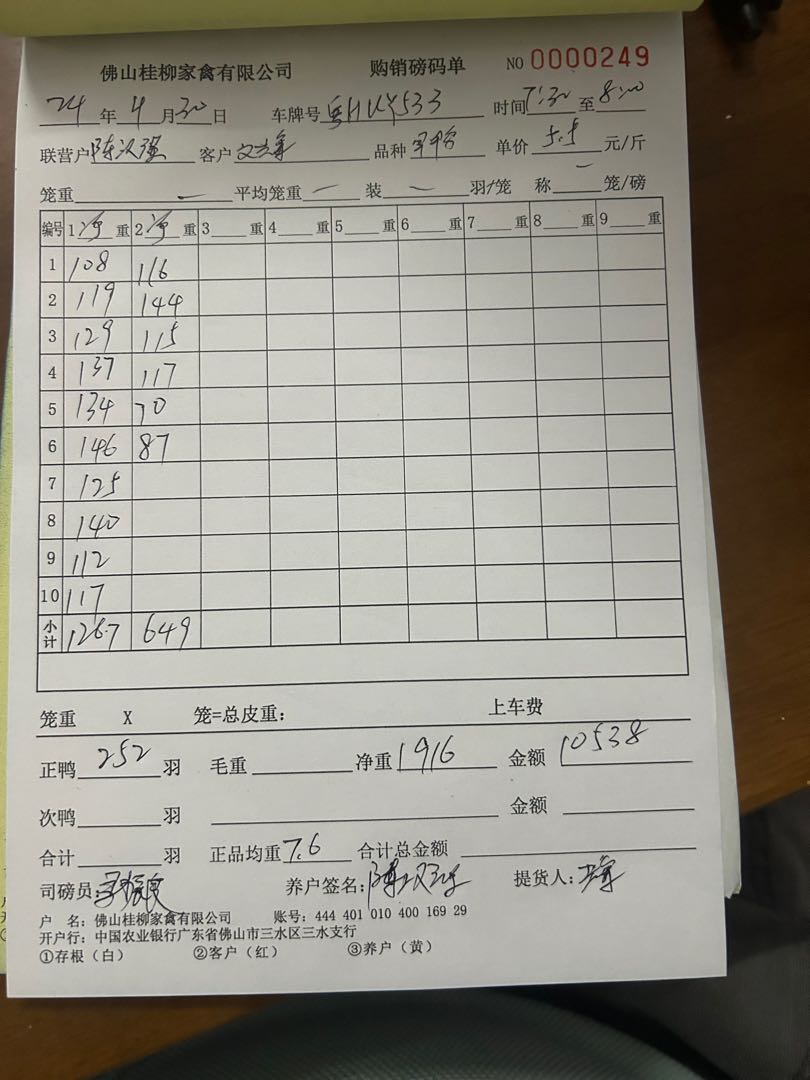 佛山桂柳家禽有限公司 购销磅码单 NO 0000249
24 年 4 月 30 日 车牌号 时间 7:30 至 8:00
联营户 陈汉强 客户 品种 单价 5.5 元/斤
笼重 — 平均笼重 — 装 — 羽/笼 称 — 笼/磅
编号 1 净 重 2 净 重 3 重 4 重 5 重 6 重 7 重 8 重 9 重
1 108 116
2 119 144
3 129 115
4 137 117
5 134 70
6 146 87
7 125
8 140
9 112
10 117
小计 1267 649
笼重 X 笼=总皮重: 上车费
正鸭 252 羽 毛重 净重 1916 金额 10538
次鸭 羽 金额
合计 羽 正品均重 7.6 合计总金额
司磅员: 养户签名: 提货人:
户 名: 佛山桂柳家禽有限公司 账号: 444 401 010 400 169 29
开户行: 中国农业银行广东省佛山市三水区三水支行
①存根（白） ②客户（红） ③养户（黄）